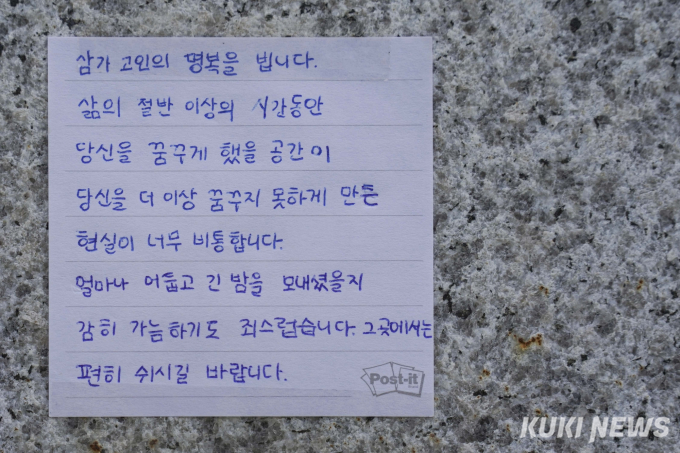 삼가 고인의 명복을 빕니다.
삶의 절반 이상의 시간동안
당신을 꿈꾸게 했을 공간이
당신을 더 이상 꿈꾸지 못하게 만든
현실이 너무 비통합니다.
얼마나 어둡고 긴 밤을 보내셨을지
감히 가늠하기도 죄스럽습니다. 그곳에서는
편히 쉬시길 바랍니다.
Post-it
KUKI NEWS